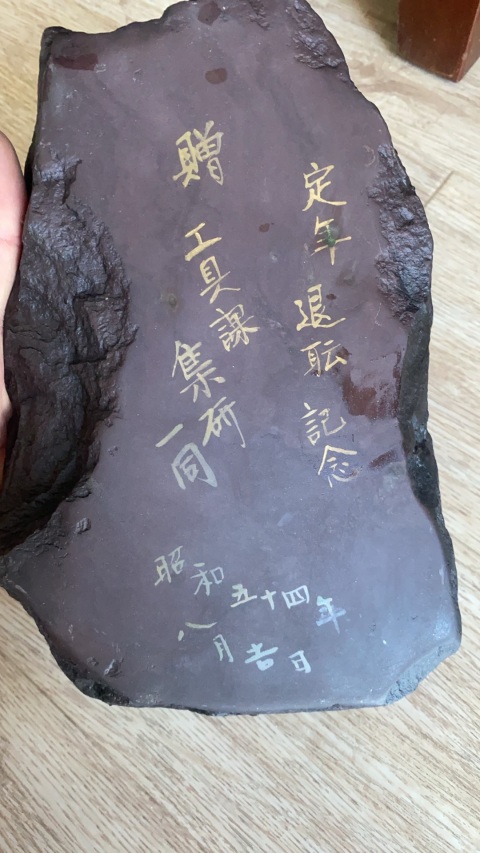 定年 退耺 記念
贈 工具課 集研一同
昭和五十四年
八月吉日